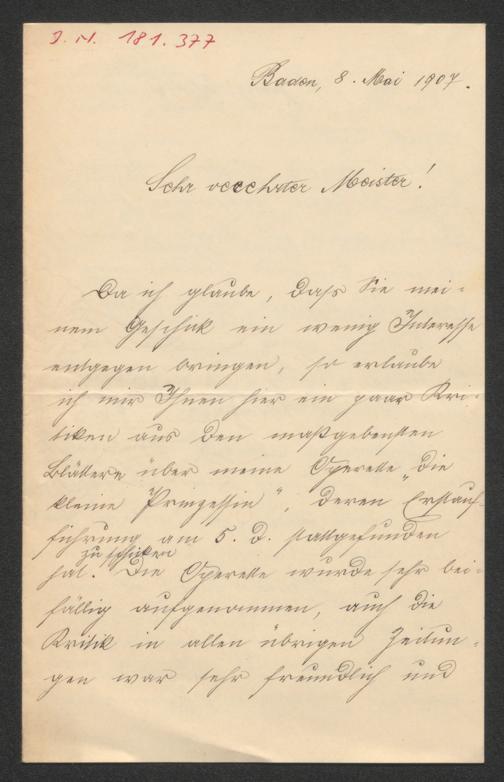 J. N. 181.377
Baden, 8. Mai 1907.
Sehr verehrter Meister!
Da ich glaube, daß Sie mei-
nem Geschick ein wenig Interesse
entgegen bringen, so erlaube
ich mir Ihnen hier ein paar Kri-
tiken aus den maßgebensten
Blättern über meine Operette „Die
kleine Prinzessin“, deren Erstauf-
führung am 5. d. stattgefunden
zu schicken
hat. Die Operette wurde sehr bei-
fällig aufgenommen, auch die
Kritik in allen übrigen Zeitun-
gen war sehr freundlich und